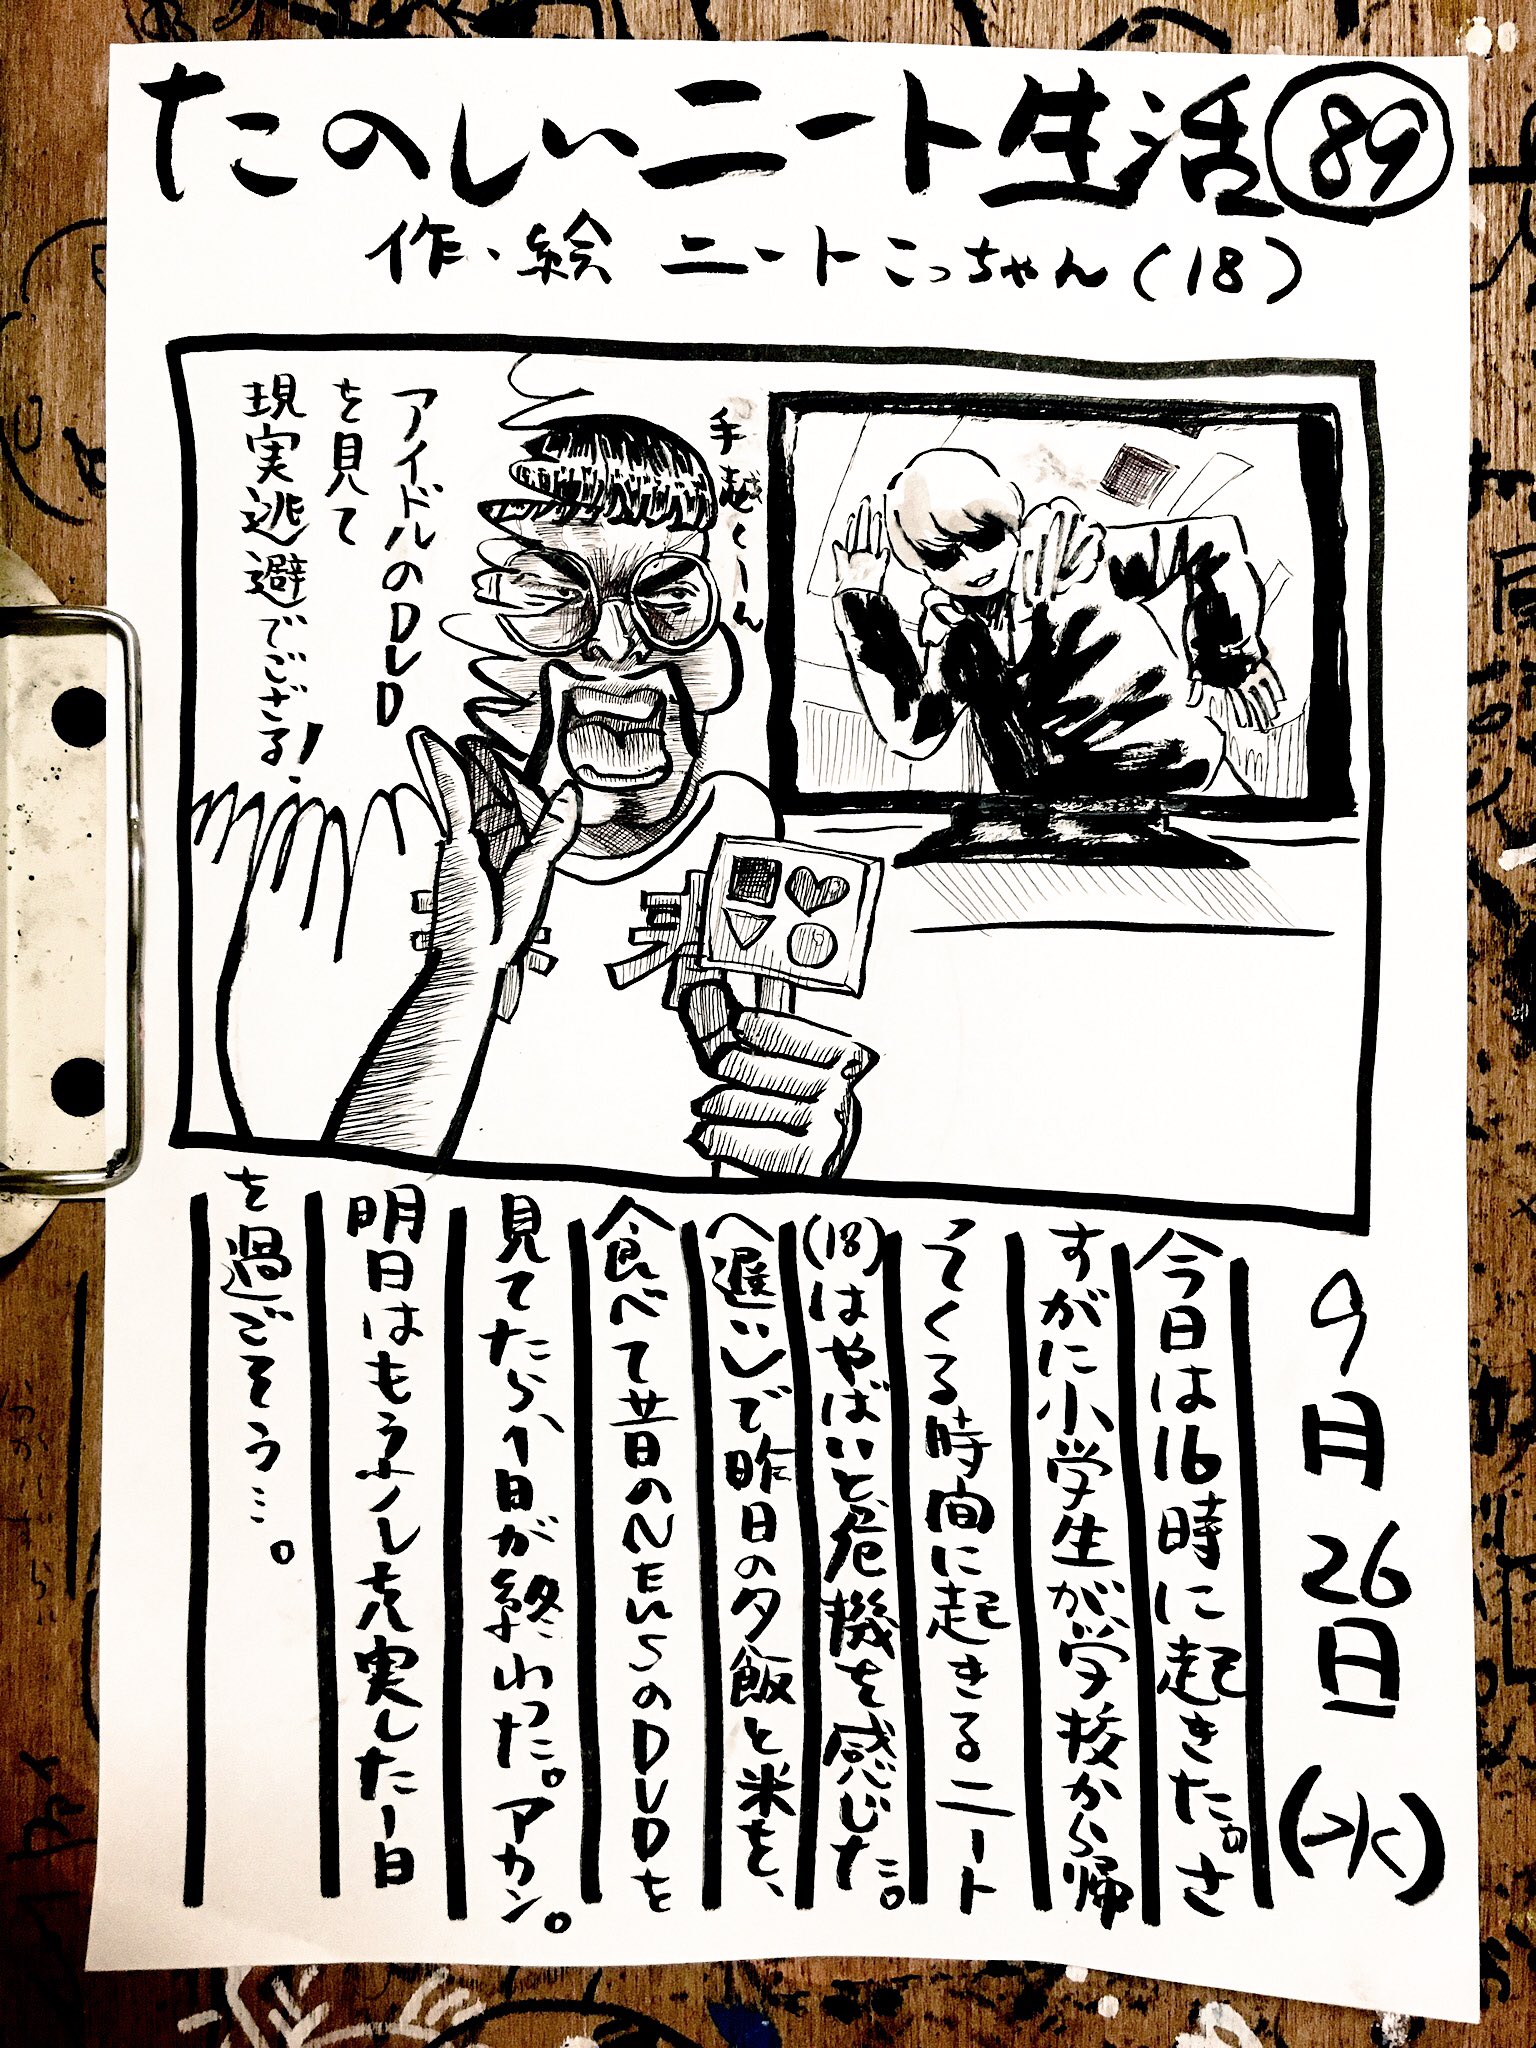 たのしいニート生活 89
作、絵 ニートこっちゃん(18)
手越くーん
アイドルのDVD
を見て
現実逃避でござる!
9月26日(水)
今日は16時に起きた。さ
すがに小学生が学校から帰
ってくる時間に起きるニート
(18)はやばいと危機を感じた…。
へ遅いしで昨日の夕飯と米を、
食べて昔のNEWSのDVDを
見てたら、1日が終わった。アカン。
明日はもう少し充実した一日
を過ごそう…。